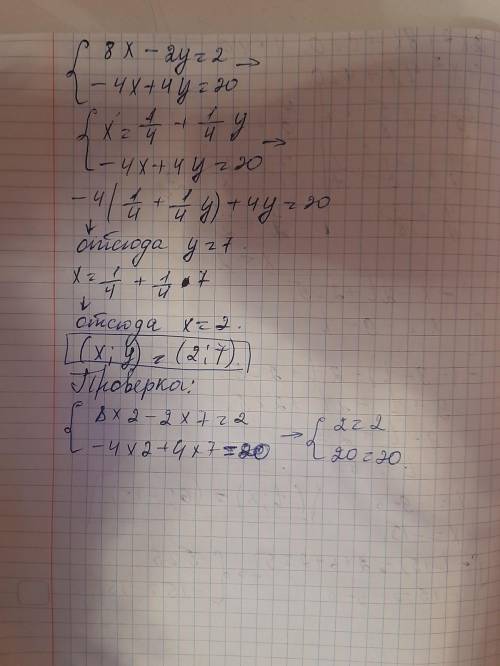 { 8x - 2y = 2 →
{ -4x + 4y = 20
{ x = 1/4 + 1/4 y
{ -4x + 4y = 20 →
-4(1/4 + 1/4 y) + 4y = 20
↓
отсюда y = 7.
x = 1/4 + 1/4 • 7
↓
отсюда x = 2.
(x; y) = (2; 7).
Проверка:
{ 8 x 2 - 2 x 7 = 2
{ -4 x 2 + 4 x 7 = 20 → { 2 = 2
{ 20 = 20.